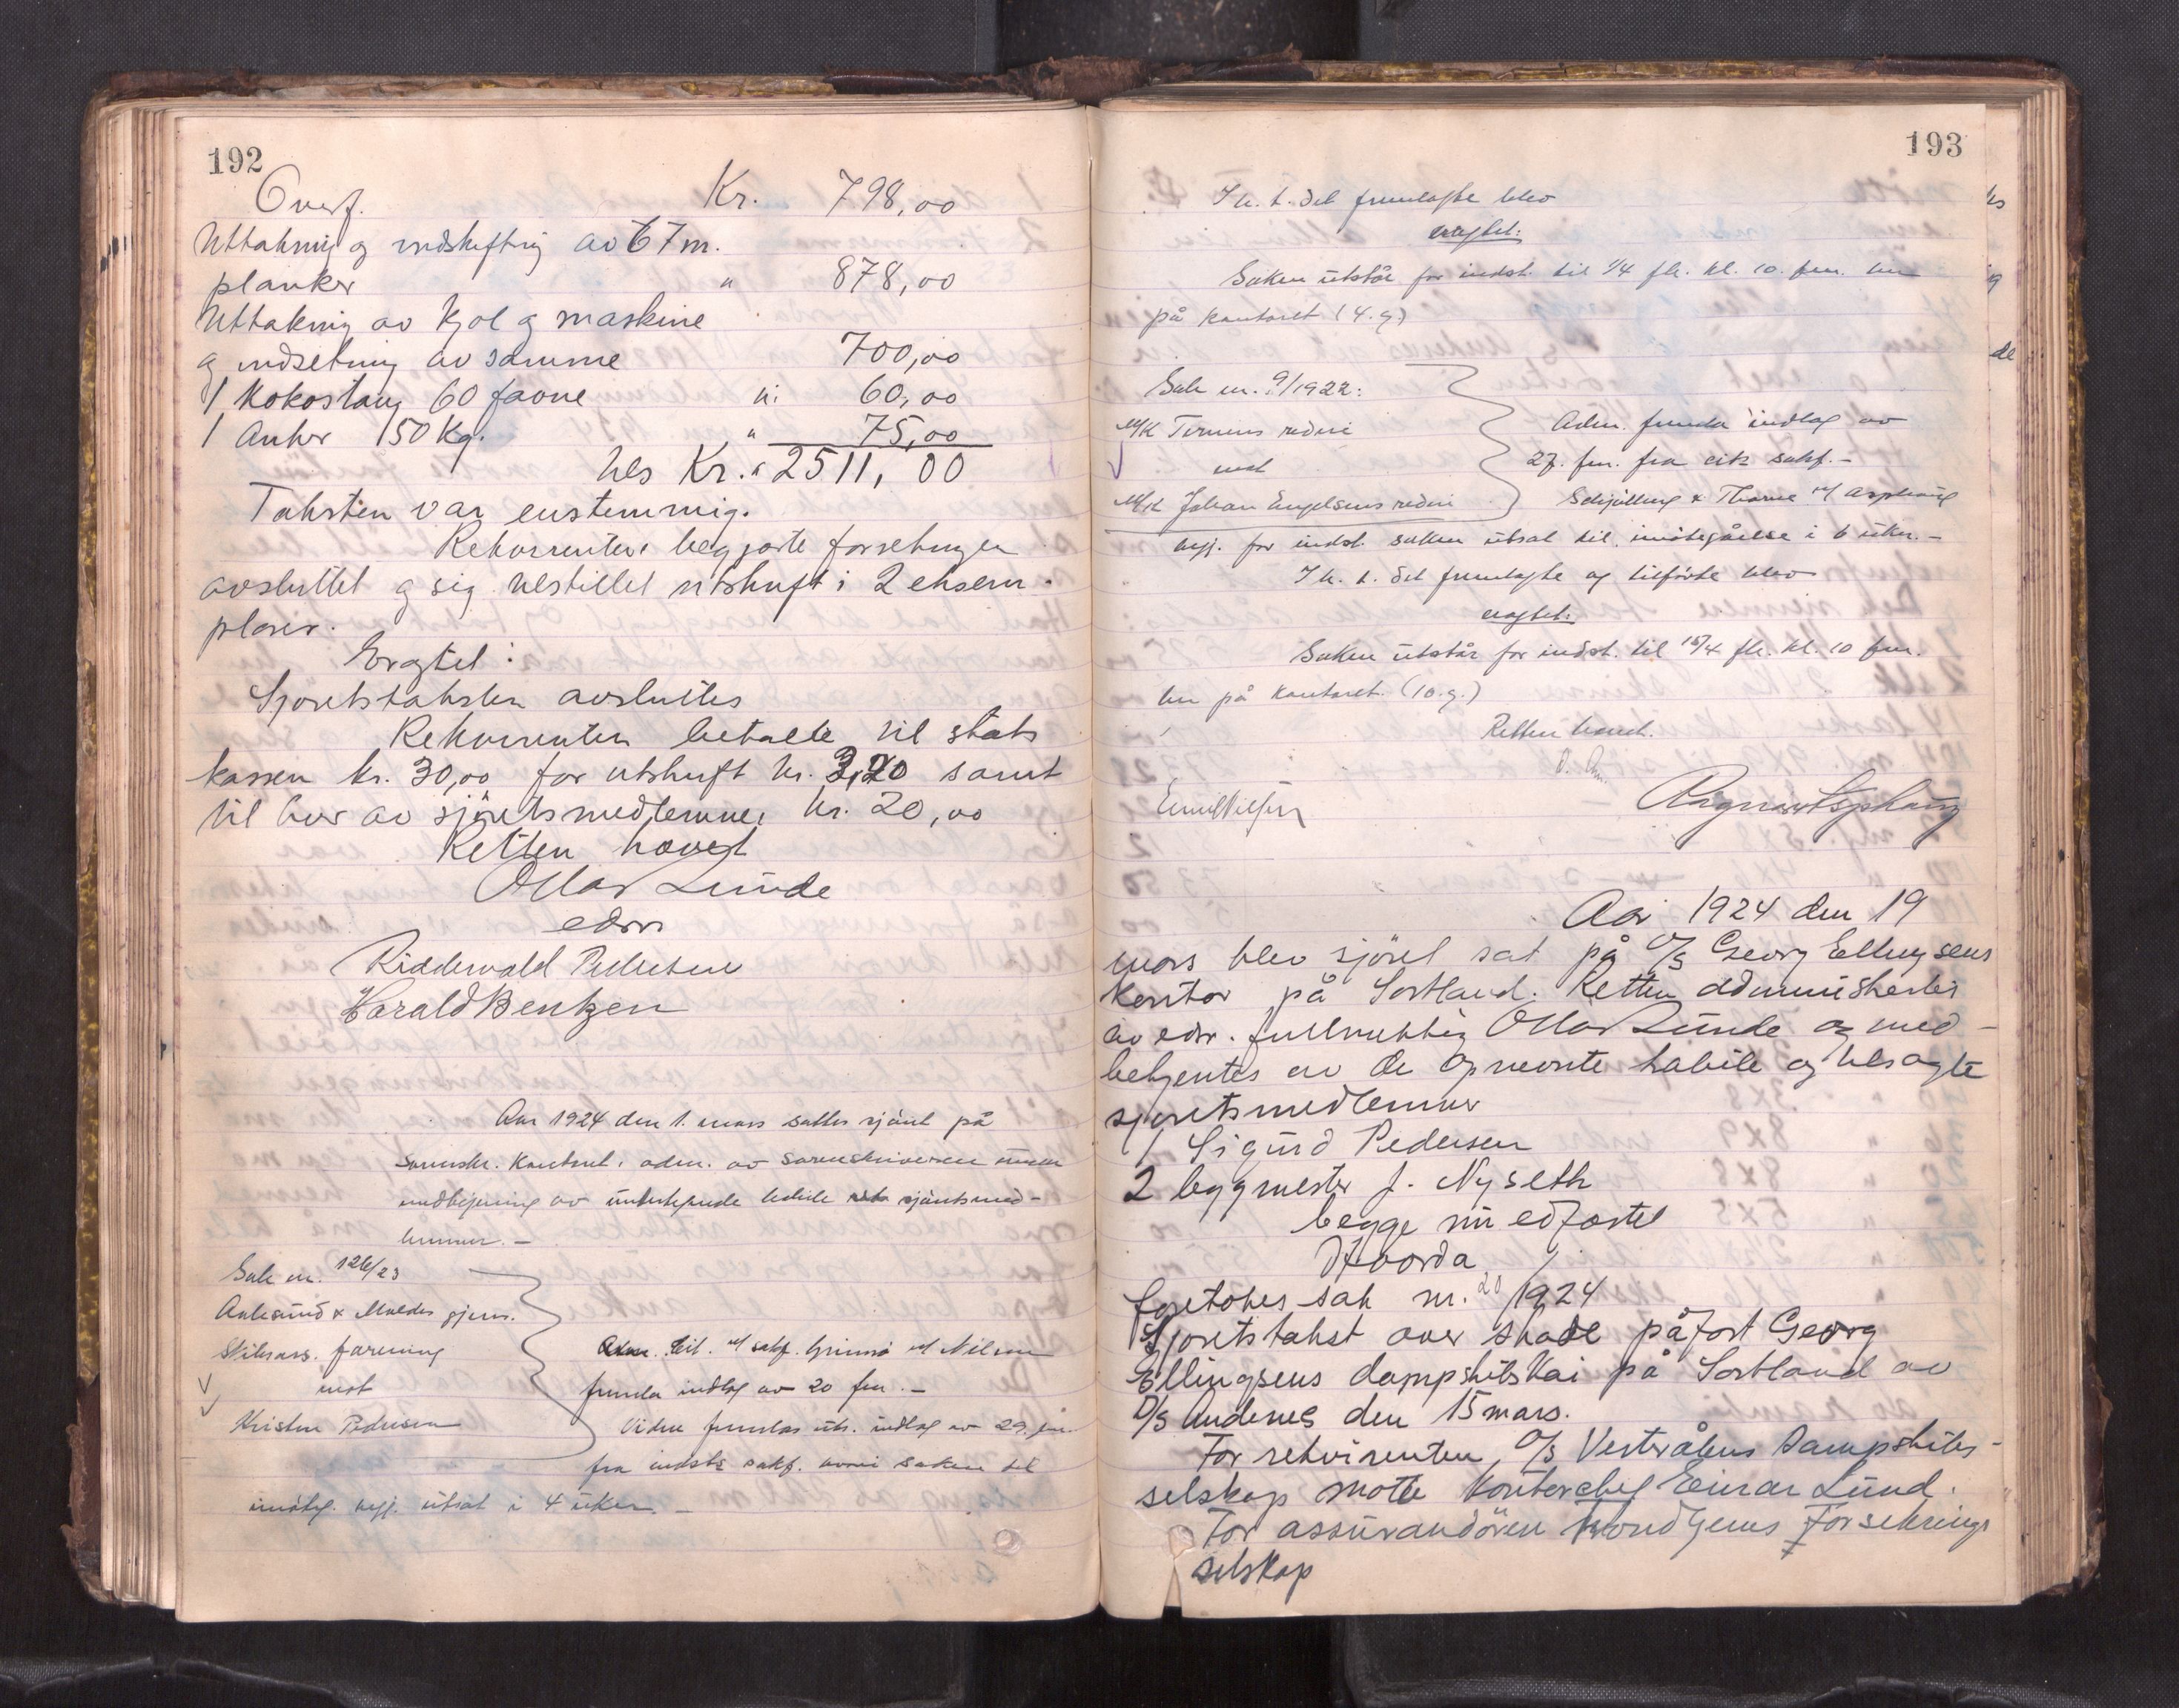 192
Overf. Kr. 798,00
Uttakning og indskiftnig av 67 m.
planker " 878,00
Uttakning av kjøl og maskine
og indsetning av samme 700,00
1 Kokostaug 60 favne " 60,00
1 Anker 150 Kg. " 75,00
tils Kr. " 2511,00
Taksten var enstemmig.
Rekvirenten begjærte forretningen
avsluttet og sig tilstillet utskrift i 2 eksem-
plarer.
Eragtet:
Sjøretstaksten avsluttes
Rekvirenten betalte til stats
kassen kr. 30,00 for utskrift kr. 3,20 samt
til hver av sjöretsmedlemmer kr. 20,00
Retten hævet
Ottar Lunde
edsv
Riddervold Pettersen
Harald Bentzen
Aar 1924 den 1. mars sattes sjöret på
sorenskr. kontoret, adm. av sorenskriveren under
medbetjening av undertegnede habile sjöretsmed-
lemmer. -
Sak nr. 126/23
Aalesund & Moldes gjens.
Skibsass. forening
mot
Kristen Pedersen
Adm. til. v/ sakf. Grinnø v/ Nilsen
fremla indlæg av 20 feb. -
Viden fremlas uts. indlæg av 29. jan.
fra indst. sakf. hvori saken til
imøteg. begj. utsat i 4 uker. -
193
I h. t. det fremlagte blev
eragtet:
Saken utstår for indst. til 1/4 fk. kl. 10. fm. her
på kontoret (4. g.)
Sak nr. 9/1922:
M/K Ternens rederi
mot
M/K Johan Engelsens rederi
Adm. fremla indlæg av
27. fm. fra cit. sakf. -
Schjølberg & Thorne v/ Asphaug
begj. for indst. saken utsat til imötegåelse i 6 uker. -
I h. t. det fremlagte og tilförte blev
eragtet:
Saken utstår for indst. til 15/4 fk. kl. 10 fm.
her på kontoret. (10. g.)
Retten hævet.
Emil Nilsen Ragnar Asphaug
Aar 1924 den 19
mars blev sjöret sat på A/S Georg Ellingsens
kontor på Sortland. Retten administrertes
av edsv. fuldmektig Ottar Lunde og med-
betjentes av de opnevnte habile og tilsagte
sjøretsmedlemmer
1 Sigurd Pedersen
2 byggmester J. Nyseth
begge nu edfæstet
Hvorda
foretokes sak nr. 20/1924
Sjøretstakst over skade påført Georg
Ellingsens dampskibskai på Sortland av
D/S Andenes den 15 mars.
For rekvirenten, A/S Vesterålens Dampskibs-
selskap møtte kontorchef Einar Lund.
For assurandören Trondhjems Forsekrings
selskap